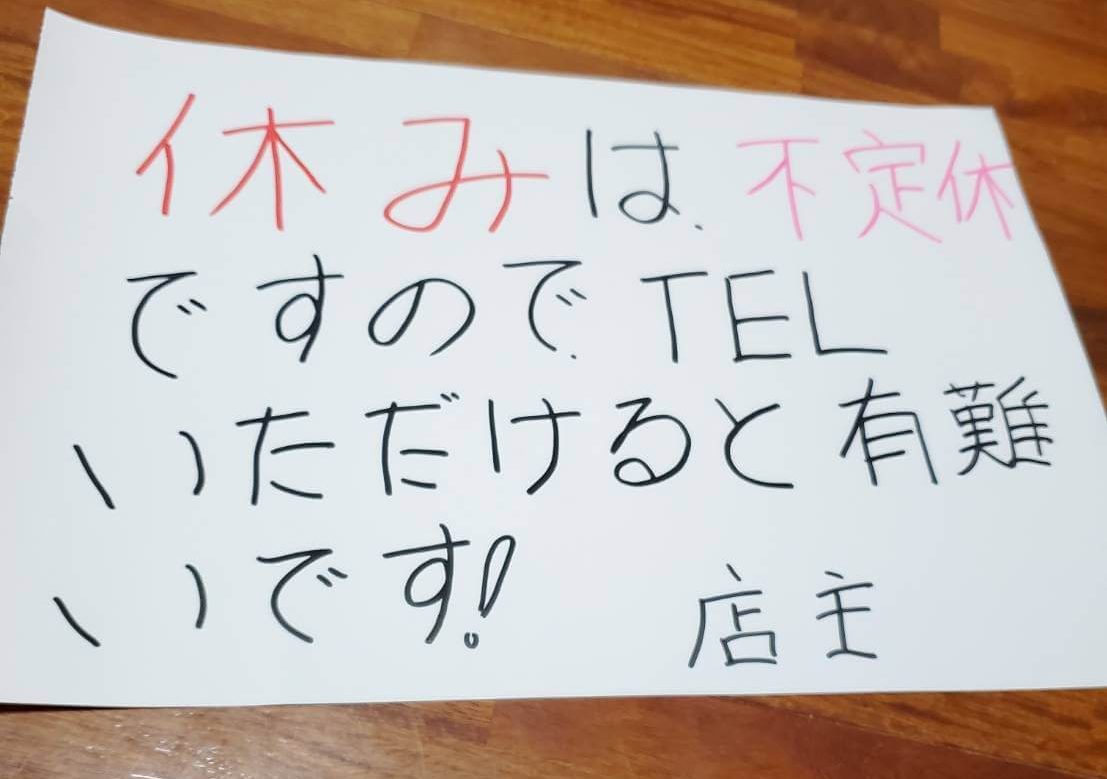 休みは、不定休
ですので、TEL
いただけると有難
いです!
店主